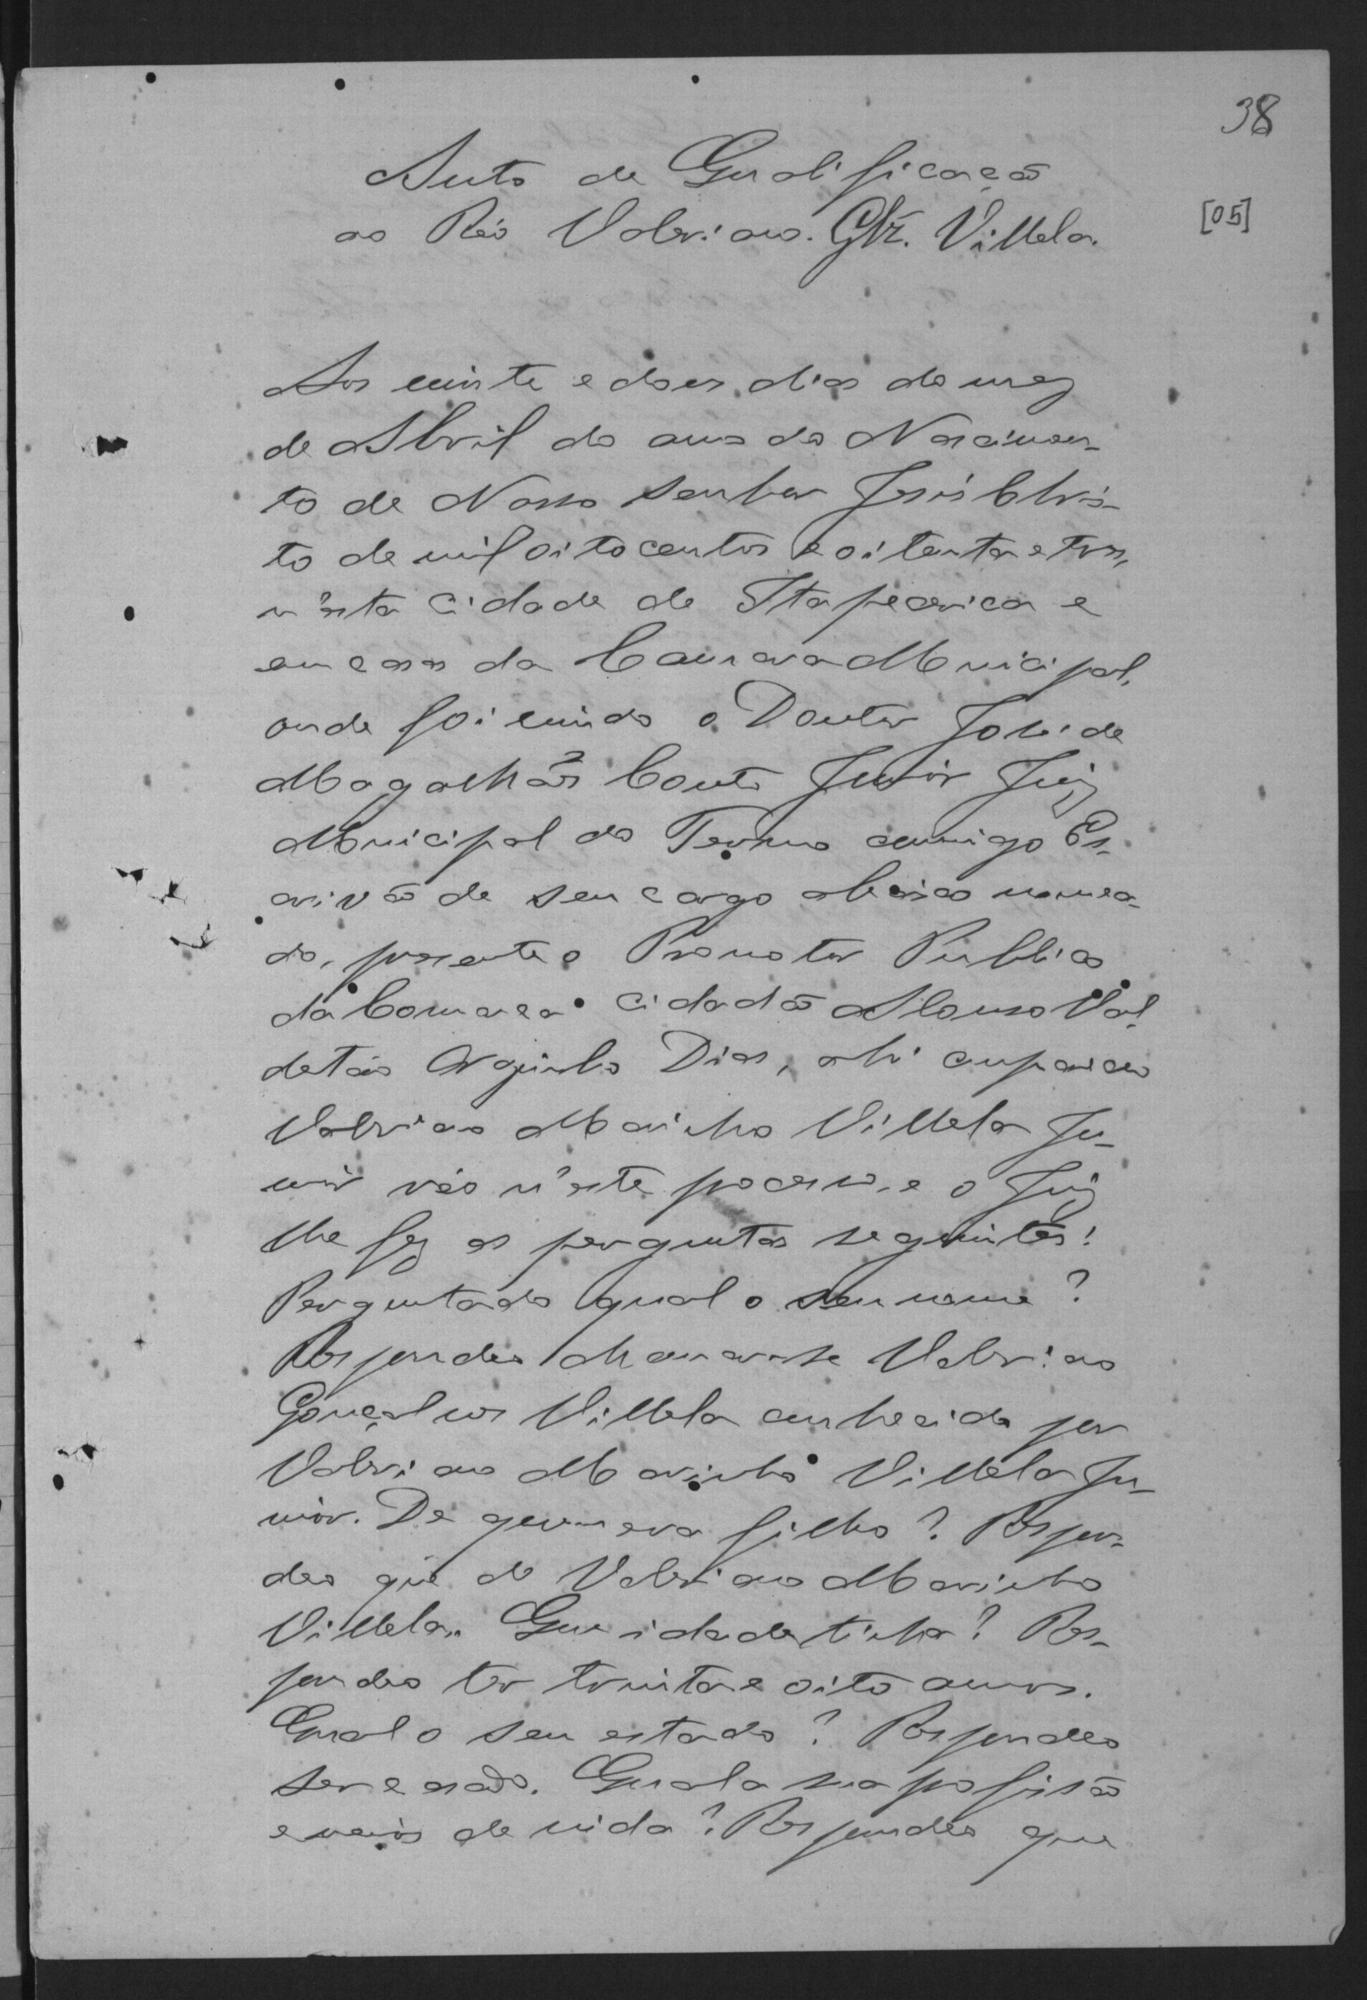 38
Auto de Qualificação
[05]
ao Réo Valeriano Glz. Villela.
Aos vinte e dous dias do mez
de Abril do anno do Nascimen-
to de Nosso Senhor Jesús Chris-
to de mil oitocentos e oitenta e tres,
n'esta Cidade de Itapecerica e
em casa da Camara Municipal,
onde foi vindo o Doutor José de
Magalhães Couto Junior Juiz
Municipal do Termo commigo Es-
crivão de seu cargo abaixo nomea-
do, presente o Promotor Publico
da Comarca cidadão Afonso Val
detaro Orginho Dias, ahi compareceo
Valeriano Marinho Villela Ju-
nior réo n'este processo, e o Juiz
lhe fez as perguntas seguintes:
Perguntado qual o seu nome?
Respondeo chamar-se Valeriano
Gonçalves Villela conhecido por
Valeriano Marinho Villela Ju-
nior. De quem era filho? Respon-
deo que de Valeriano Marinho
Villela. Que idade tinha? Res-
pondeo ter trinta e oito annos.
Qual o seu estado? Respondeo
ser casado. Qual a sua profissão
e meios de vida? Respondeo que